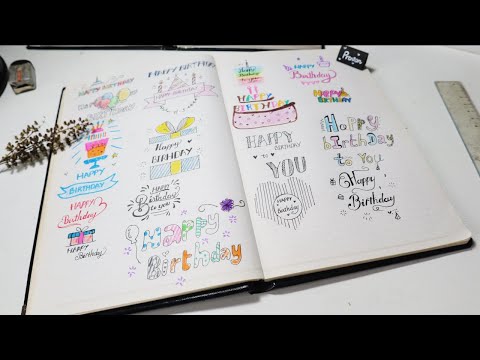 HAPPY BIRTHDAY
HAPPY
BIRTHDAY
HAPPY
Birthday
HAPPY
Birthday
HAPPY BIRTHDAY
HAPPY BIRTHDAY
Happy
BIRTHDAY
HAPPY
Birthday
to you
Happy
Birthday
Happy
Birthday
HAPPY
BIRTHDAY
HAPPY
BIRTHDAY
TO
YOU
HAPPY
Birthday
HAPPY
Birthday
HAPPY
BIRTHDAY
Happy
birthday
to you
Happy
Birthday